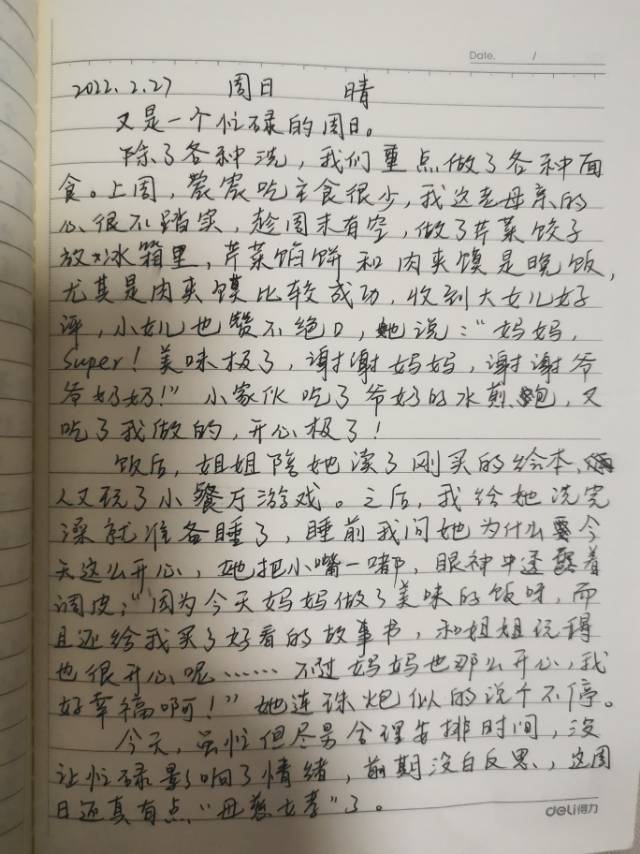 Date.       /
2022.2.27   周日   晴
又是一个忙碌的周日。
除了各种洗，我们重点做了各种面
食。上周，农农吃主食很少，我这老母亲的
心很不踏实，趁周末有空，做了芹菜饺子
放冰箱里，芹菜馅饼和肉夹馍是晚饭，
尤其是肉夹馍比较成功，收到大女儿好
评，小女儿也赞不绝口，她说："妈妈，
Super！美味极了，谢谢妈妈，谢谢爷
爷奶奶！"小家伙吃了爷奶的水煎包，又
吃了我做的，开心极了！
饭后，姐姐陪她读了刚买的绘本，
人又玩了小餐厅游戏。之后，我给她洗完
澡就准备睡了，睡前我问她为什么今
天这么开心，她把小嘴一嘟，眼神中透露着
调皮："因为今天妈妈做了美味的饭呀，而
且还给我买了好看的故事书，和姐姐玩得
也很开心呢……不过妈妈也那么开心，我
好幸福啊！"她连珠炮似的说个不停。
今天，虽忙但尽量合理安排时间，没
让忙碌影响了情绪，前期没白反思，这周
日还真有点"母慈女孝"了。
deli得力